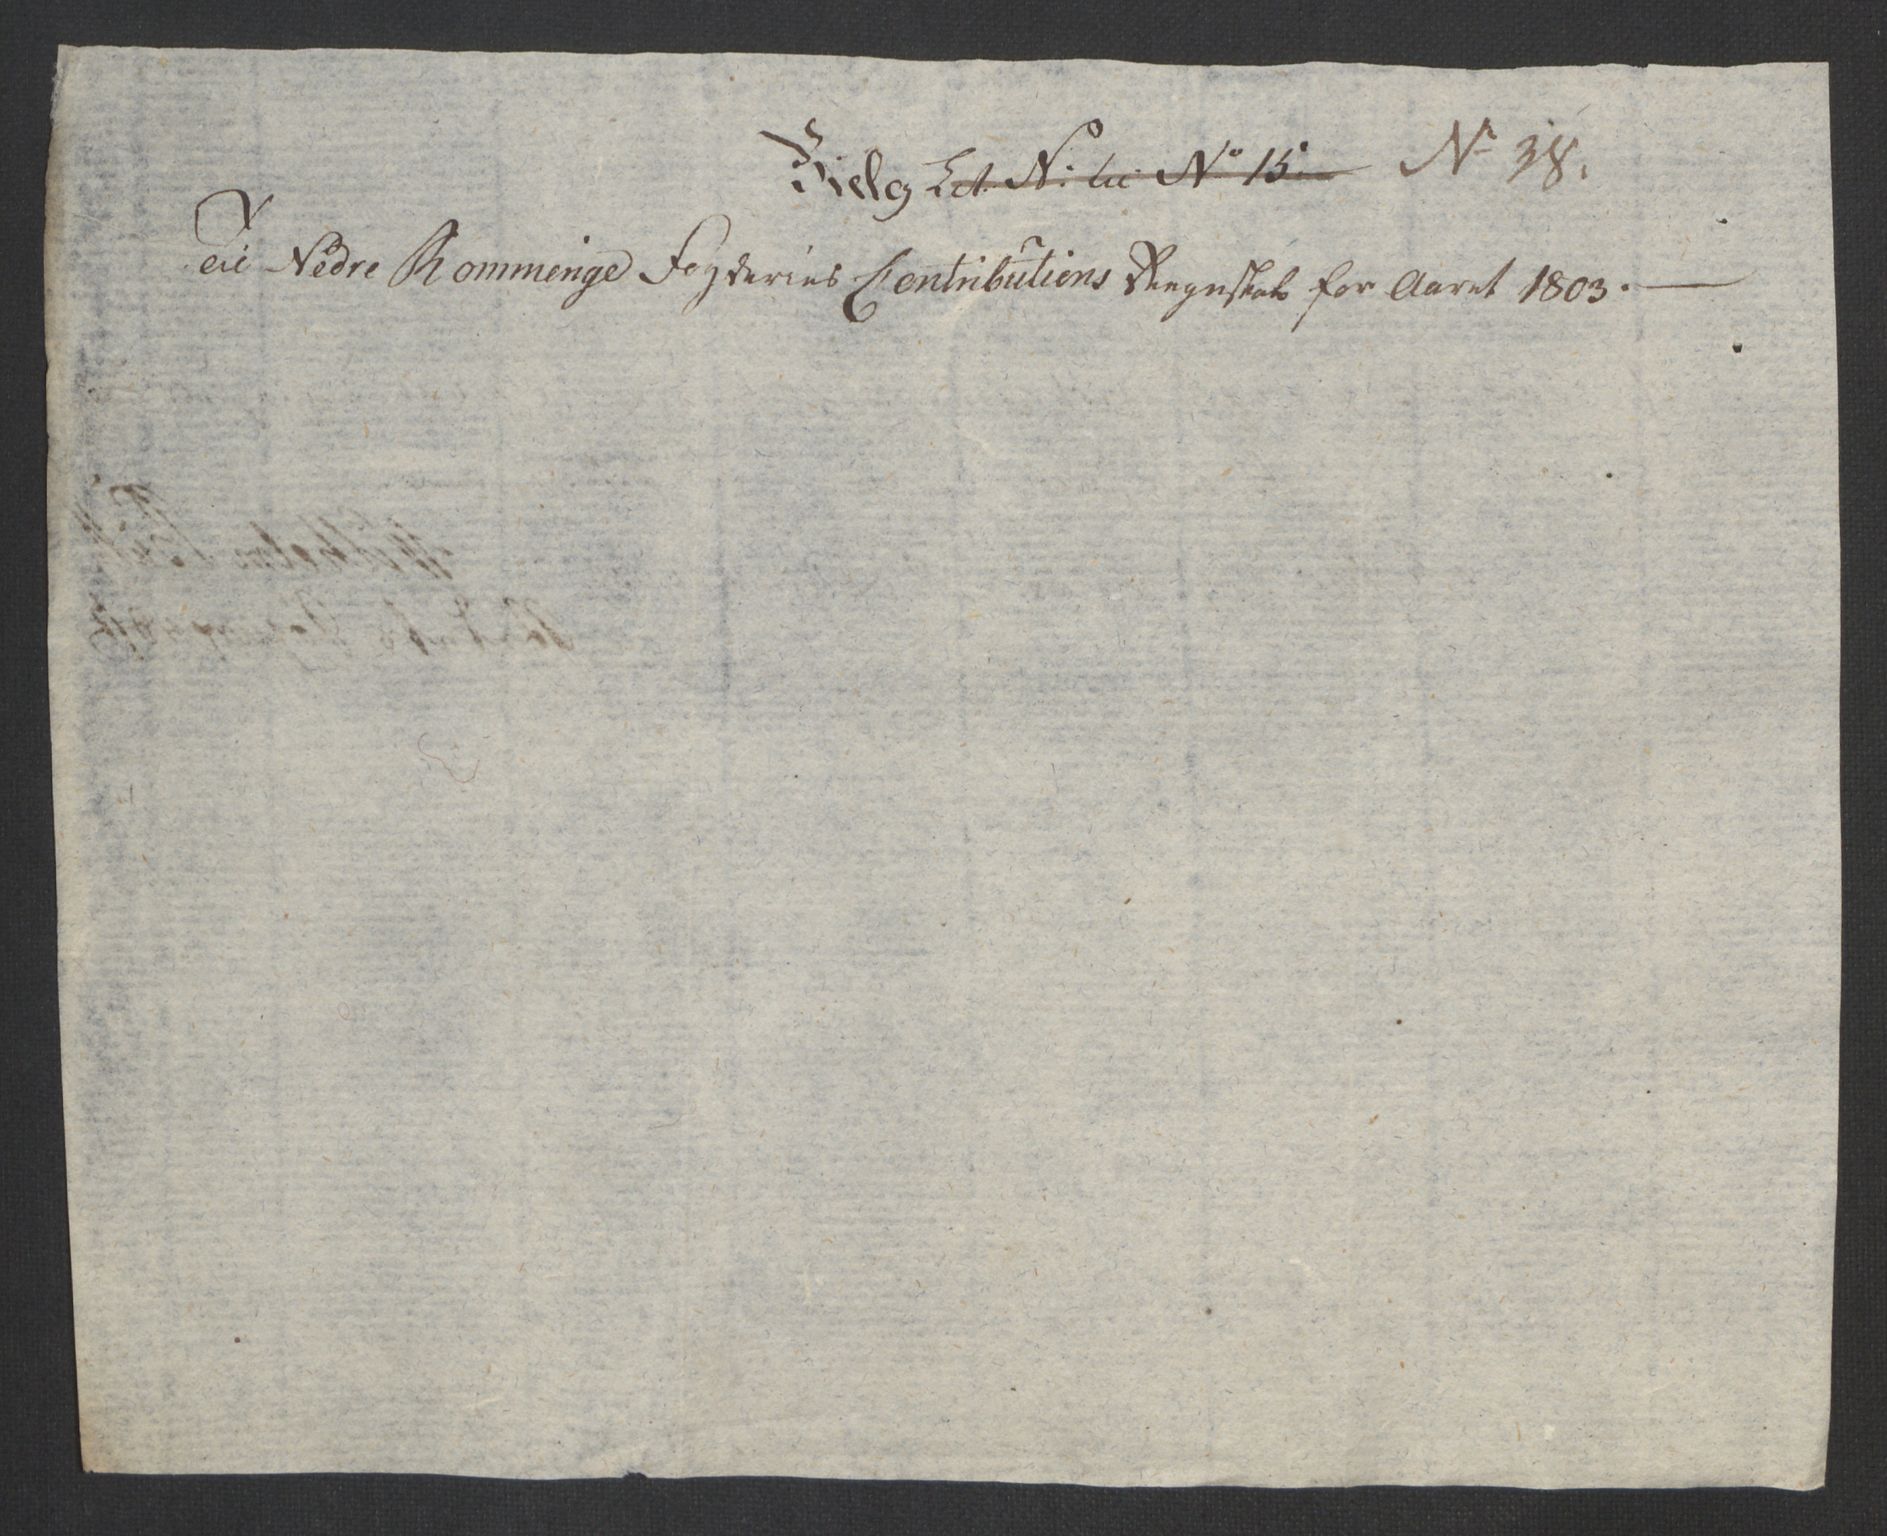 Bielg Lit. N: N.o 15. N.o 38.
Til Nedre Rommerige Fogderies Contributions Regnskab for Aaret 1803.